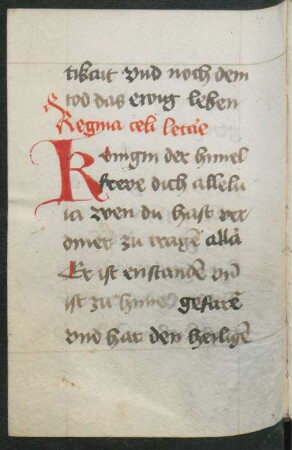 tikait vnd noch dem
tod das ewig leben
Regina celi letāe
Konigin der himel
frewe dich allelu
ia wen du hast ver
dinet zu tragē allā
Er ist enstanden vn̄
ist zu himel gefarē
vnd hat den heiligē